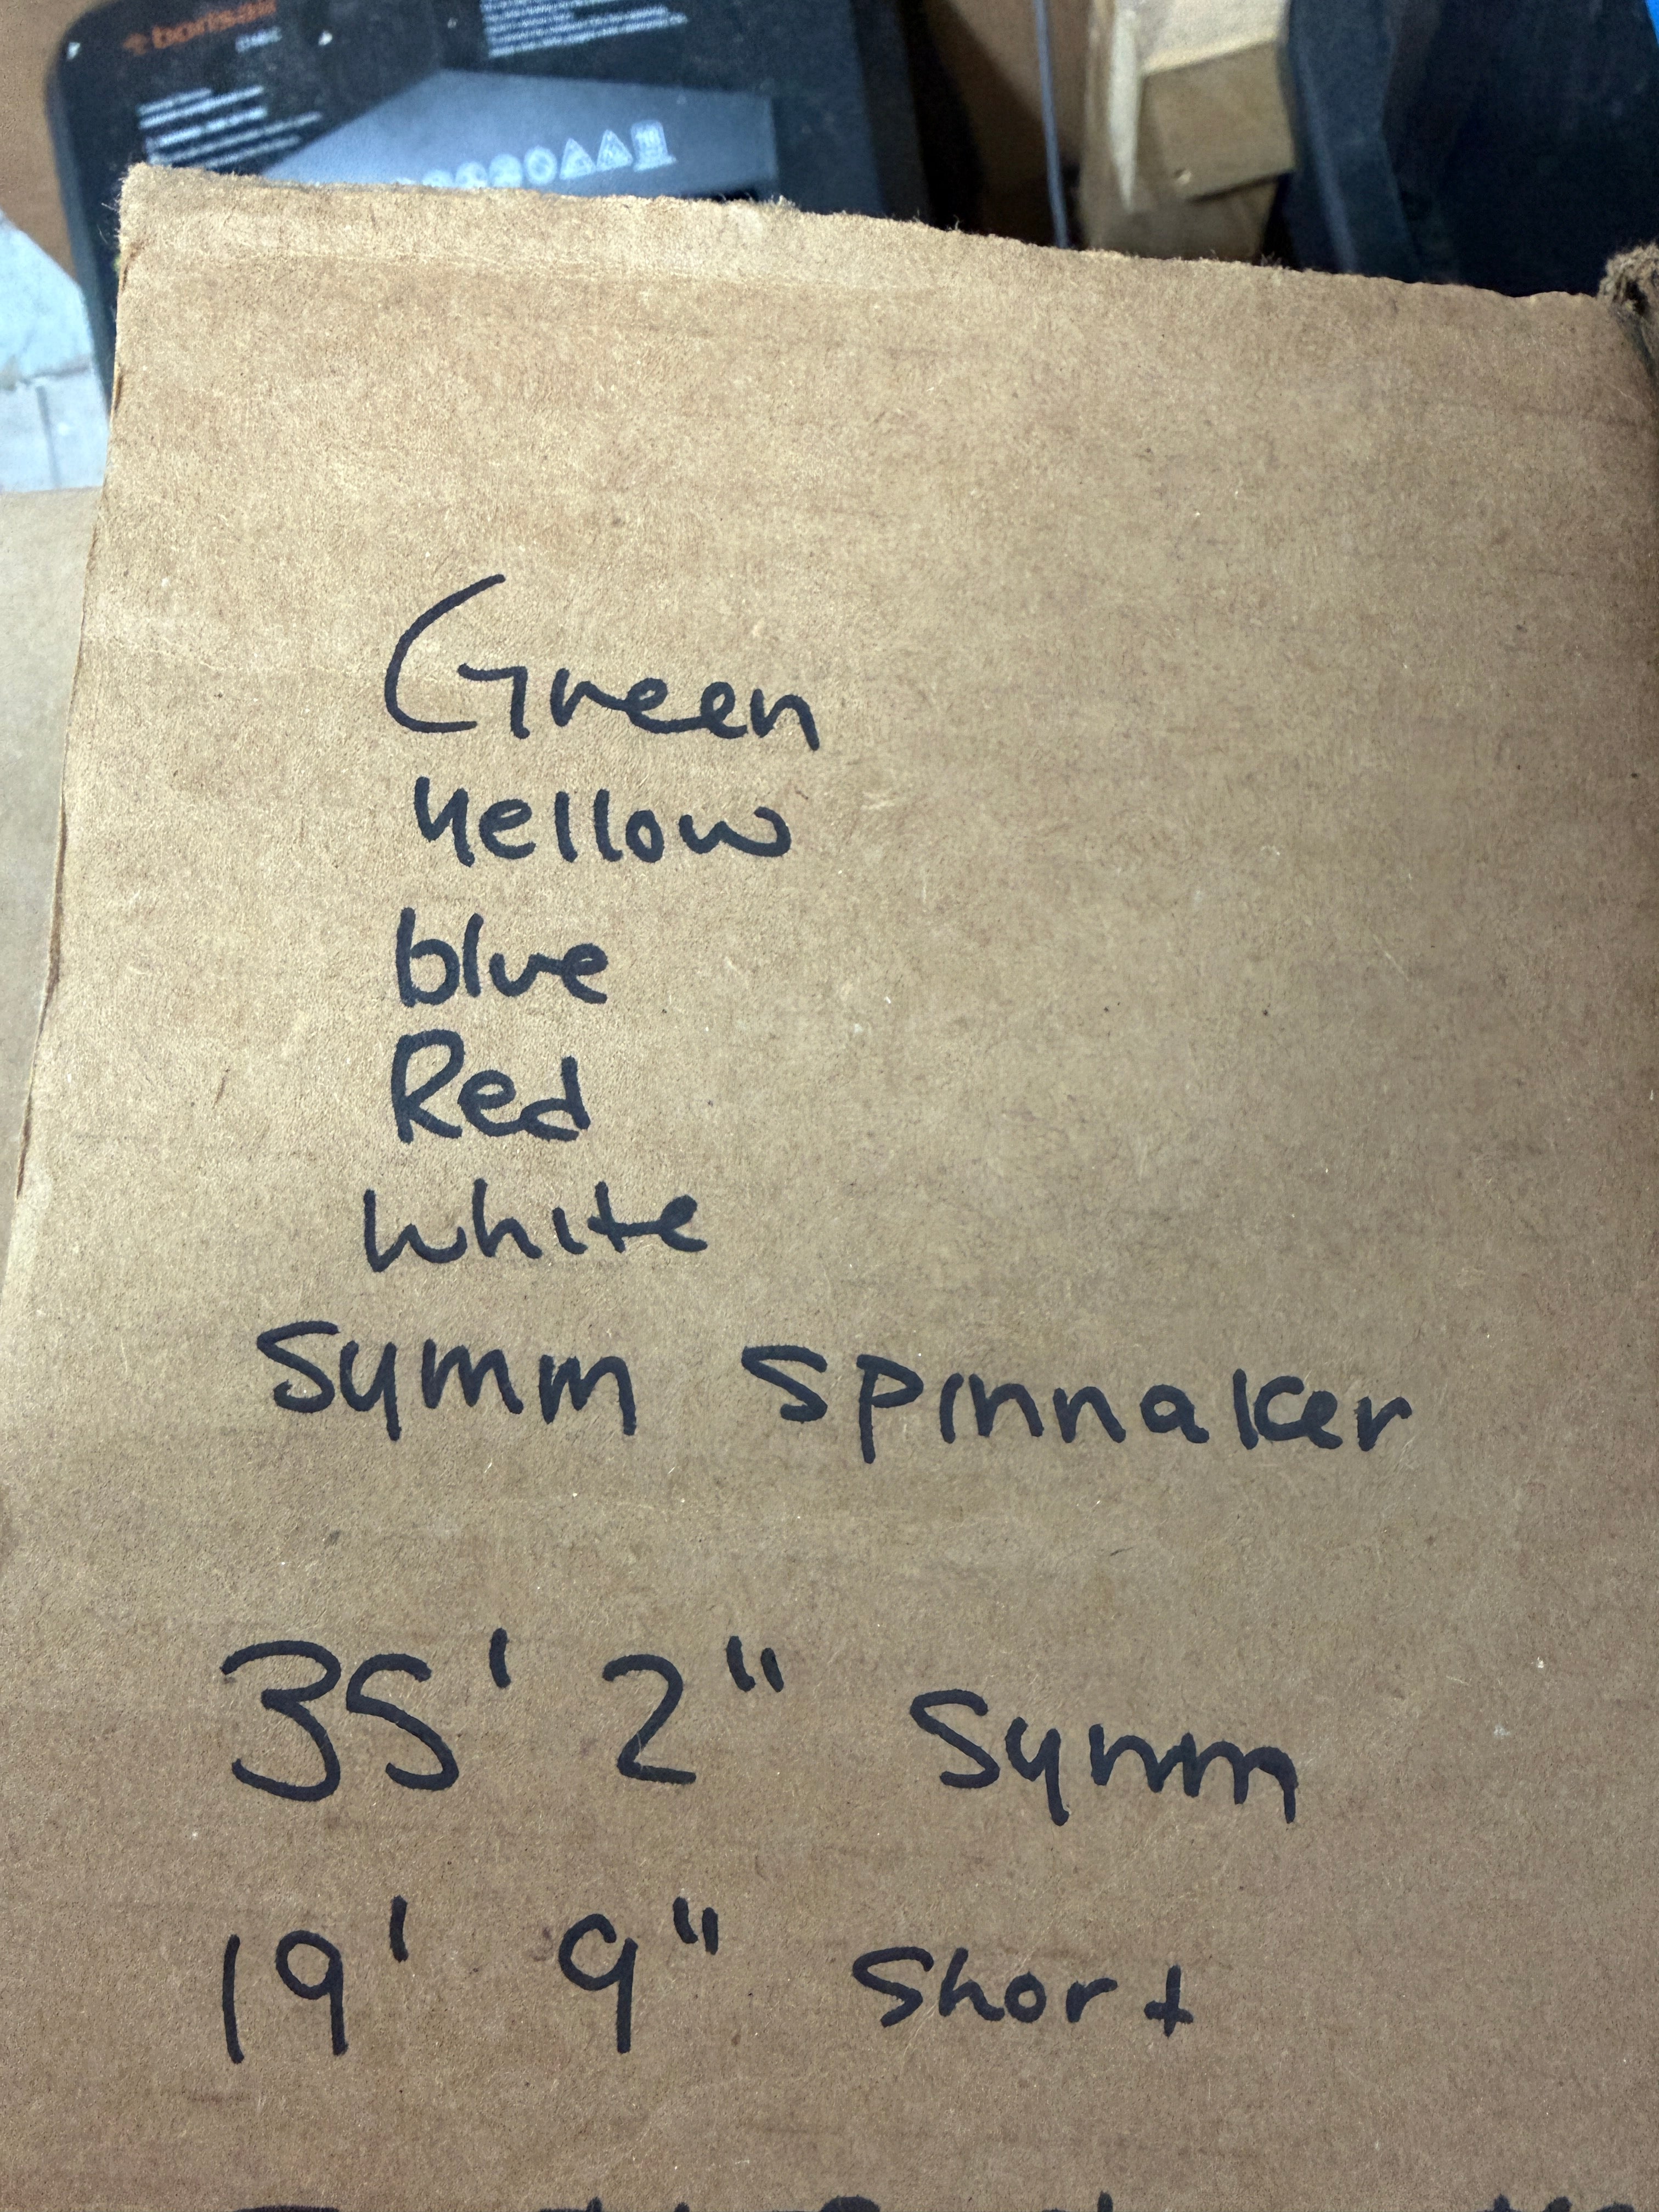 Green
Yellow
blue
Red
White
Symm Spinnaker
35' 2" Symm
19' 9" Short